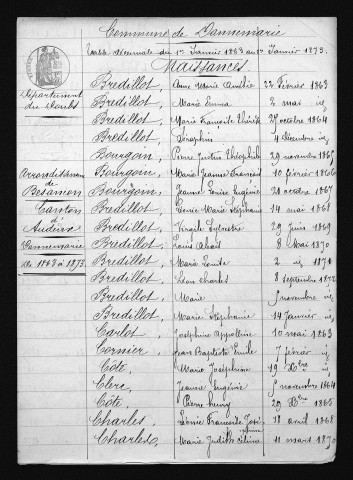 Commune de Dannemarie
Table décennale du 1er Janvier 1863 au 1er Janvier 1873.
Naissances
Département
du Doubs
Arrondissement
de
Besançon
Canton
d'
Audeux
Dannemarie
De 1863 à 1873
Bredillot, Anne Marie 22 Février 1863
Bredillot, Marie Emma 2 mai id
Bredillot, Marie Françoise 27 octobre 1864
Bredillot, Séraphin 4 décembre id
Bourgoin, Pierre Justin Théophile 29 novembre 1865
Bourgoin, Marie Jeanne 10 février 1866
Bourgoin, Jeanne Eugénie 28 octobre 1867
Bredillot, Marie Stéphanie 14 mai 1868
Bredillot, Virgile Sylvestre 29 juin 1869
Bredillot, Louis 8 Mai 1870
Bredillot, Marie 2 id 1870
Bredillot, Léon Charles 8 septembre 1872
Bredillot, Marie novembre id
Bredillot, Marie Stéphanie 14 Janvier id
Carlot, Joséphine Appoline 10 mai 1863
Cornier, Jean Baptiste Emile 7 février id
Côte, Marie Joséphine 19 Xbre id
Clerc, Jeanne Eugénie novembre 1864
Côte, Pierre henry 29 Xbre 1865
Charles, Léonie Françoise 18 avril 1868
Charles, Marie Judith 11 mars 1870